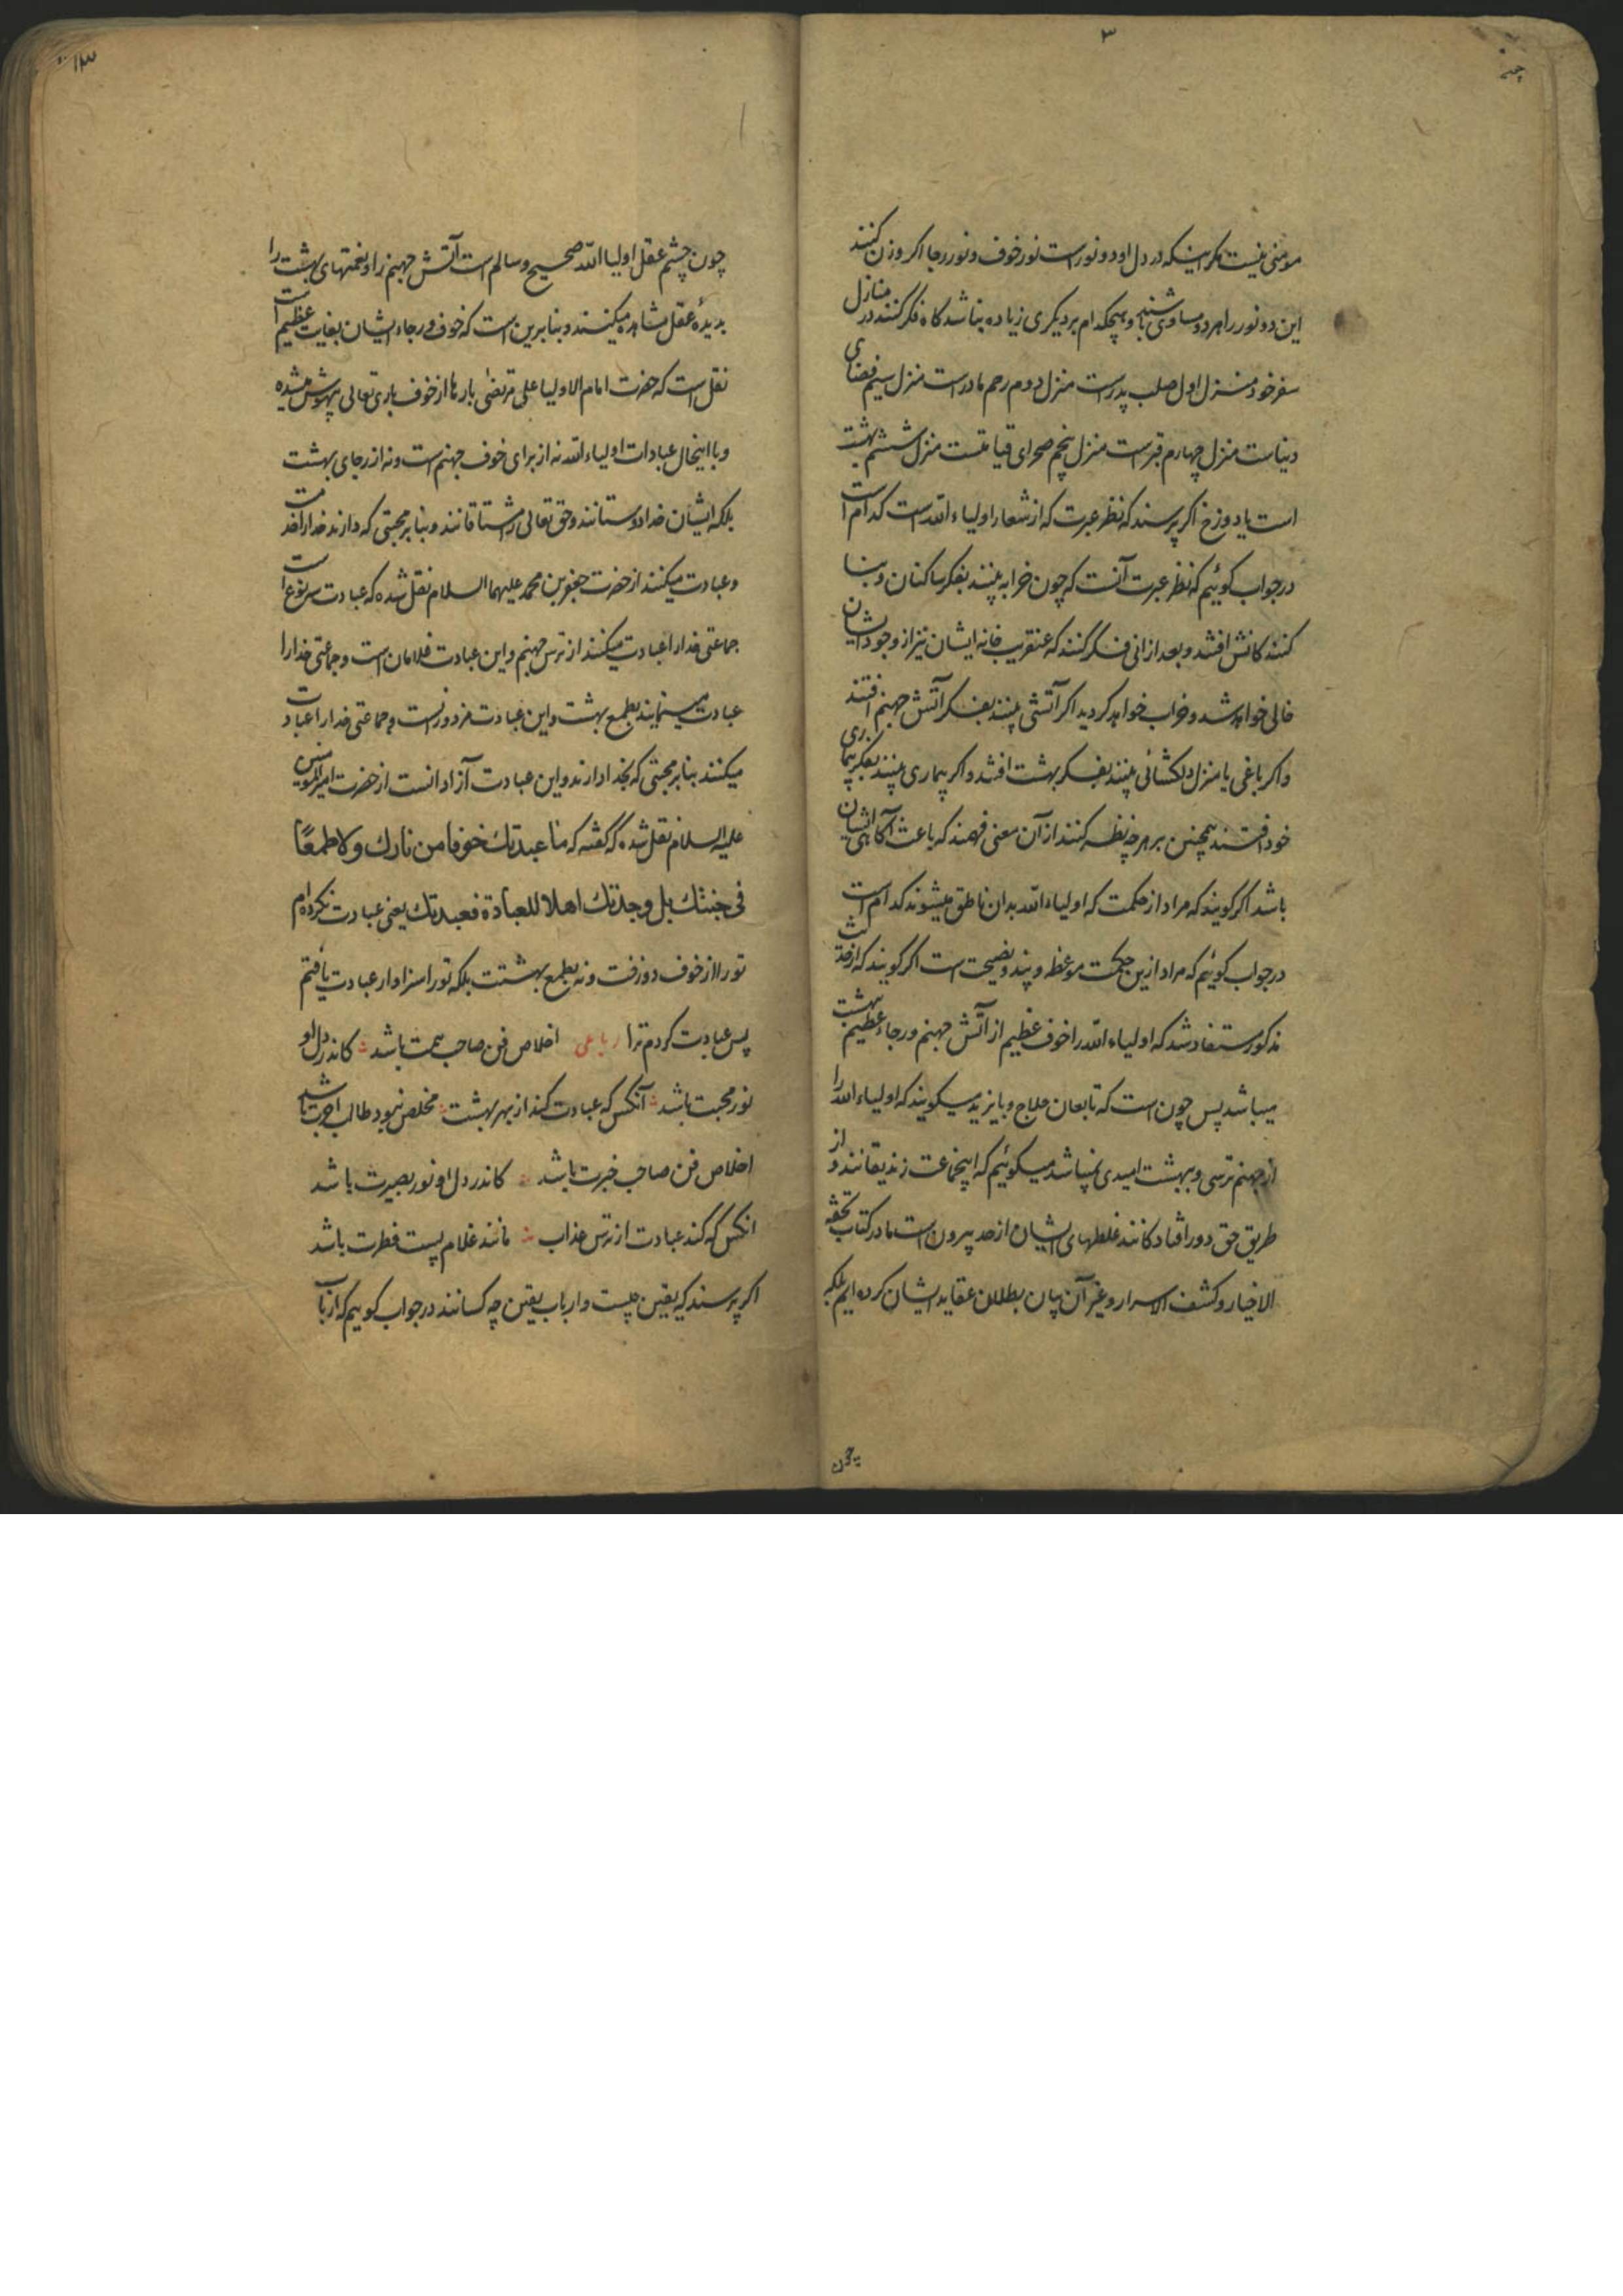 ۳
مومنی نیست مکر اینکه در دل او دو نورست نور خوف و نور رجا اکر وزن کنند
این دو نور را هر دو مساوی باشند و هیچکدام بر دیکری زیاده نباشد کاه فکر کنند در منازل
سفر خود منزل اول صلب پدرست منزل دوم رحم مادرست منزل سیم فضای
دنیاست منزل چهارم قبرست منزل پنجم صحرای قیامتست منزل ششم بهشت
است یا دوزخ اکر پرسند که نظر عبرت که از شعار اولیاء الله است کدام است
در جواب کوئیم که نظر عبرت آنست که چون خرابه بینند بفکر ساکنان و بنا
کنندکانش افتند و بعد ازانی فکر کنند که عنقریب خانه ایشان نیز از وجود ایشان
خالی خواهد شد و خراب خواهد کردید اکر آتشی بینند بفکر آتش جهنم افتند
واکر باغی یا منزل دلکشائی بینند بفکر بهشت افتند و اکر بیماری بینند بفکر بیماری
خود افتند همچنین بر هر چه نظر کنند از آن معنی فهمند که باعث آکاهی ایشان
باشد اکر کویند که مراد از حکمت که اولیاء الله بدان ناطق میشوند کدام است
در جواب کوئیم که مراد ازین حکمت موعظه و پند و نصیحت است اکر کویند که از حدیث
مذکور مستفاد شد که اولیاء الله را خوف عظیم از آتش جهنم و رجاء عظیم بهشت
میباشد پس چون است که تابعان حلاج و بایزید میکویند که اولیاء الله را
از جهنم ترسی و ببهشت امیدی نمیباشد میکوئیم که اینجماعت زندیقانند و از
طریق حق دور افتادکانند غلطهای ایشان از حد بیرون است ما در کتاب تحفه
الاخیار و کشف الاسرار و غیر آن بیان بطلان عقاید ایشان کرده ایم بلکه
چون
۱۳
چون چشم عقل اولیا الله صحیح و سالم است آتش جهنم را و نعمتهای بهشت را
بدیدهٔ عقل مشاهده میکنند و بنابرین است که خوف و رجاء ایشان بغایت عظیم است
نقل است که حضرت امام الاولیا علی مرتضی بارها از خوف باری تعالی بیهوش میشده
و با اینحال عبادات اولیاء الله نه از برای خوف جهنم است و نه از رجای بهشت
بلکه ایشان خدا دوستانند و حق تعالی را مشتاقانند و بنا بر محبتی که دارند خدا را خدمت
و عبادت میکنند از حضرت جعفر بن محمد علیهما السلام نقل شده که عبادت سه نوع است
جماعتی خدا را عبادت میکنند از ترس جهنم و این عبادت غلامان است و جماعتی خدا را
عبادت مینمایند بطمع بهشت و این عبادت مزدورنست و جماعتی خدا را عبادت
میکنند بنا بر محبتی که بخدا دارند و این عبادت آزادانست از حضرت امیر المومنین
علیه السلام نقل شده که کفته که ما عبدتك خوفا من نارك ولا طمعًا
فی جنتك بل وجدتك اهلا للعبادة فعبدتك یعنی عبادت نکرده ام
تو را از خوف دوزخت و نه بطمع بهشتت بلکه تو را سزاوار عبادت یافتم
پس عبادت کردم ترا رباعی اخلاص فن صاحب همت باشد کاندر دل او
نور محبت باشد آنکس که عبادت کند از بهر بهشت مخلص نبود طالب اجرت باشد
اخلاص فن صاحب خبرت باشد کاندر دل او نور بصیرت باشد
انکس که کند عبادت از ترس عذاب مانند غلام پست فطرت باشد
اکر پرسند که یقین چیست و ارباب یقین چه کسانند در جواب کوییم که ارباب